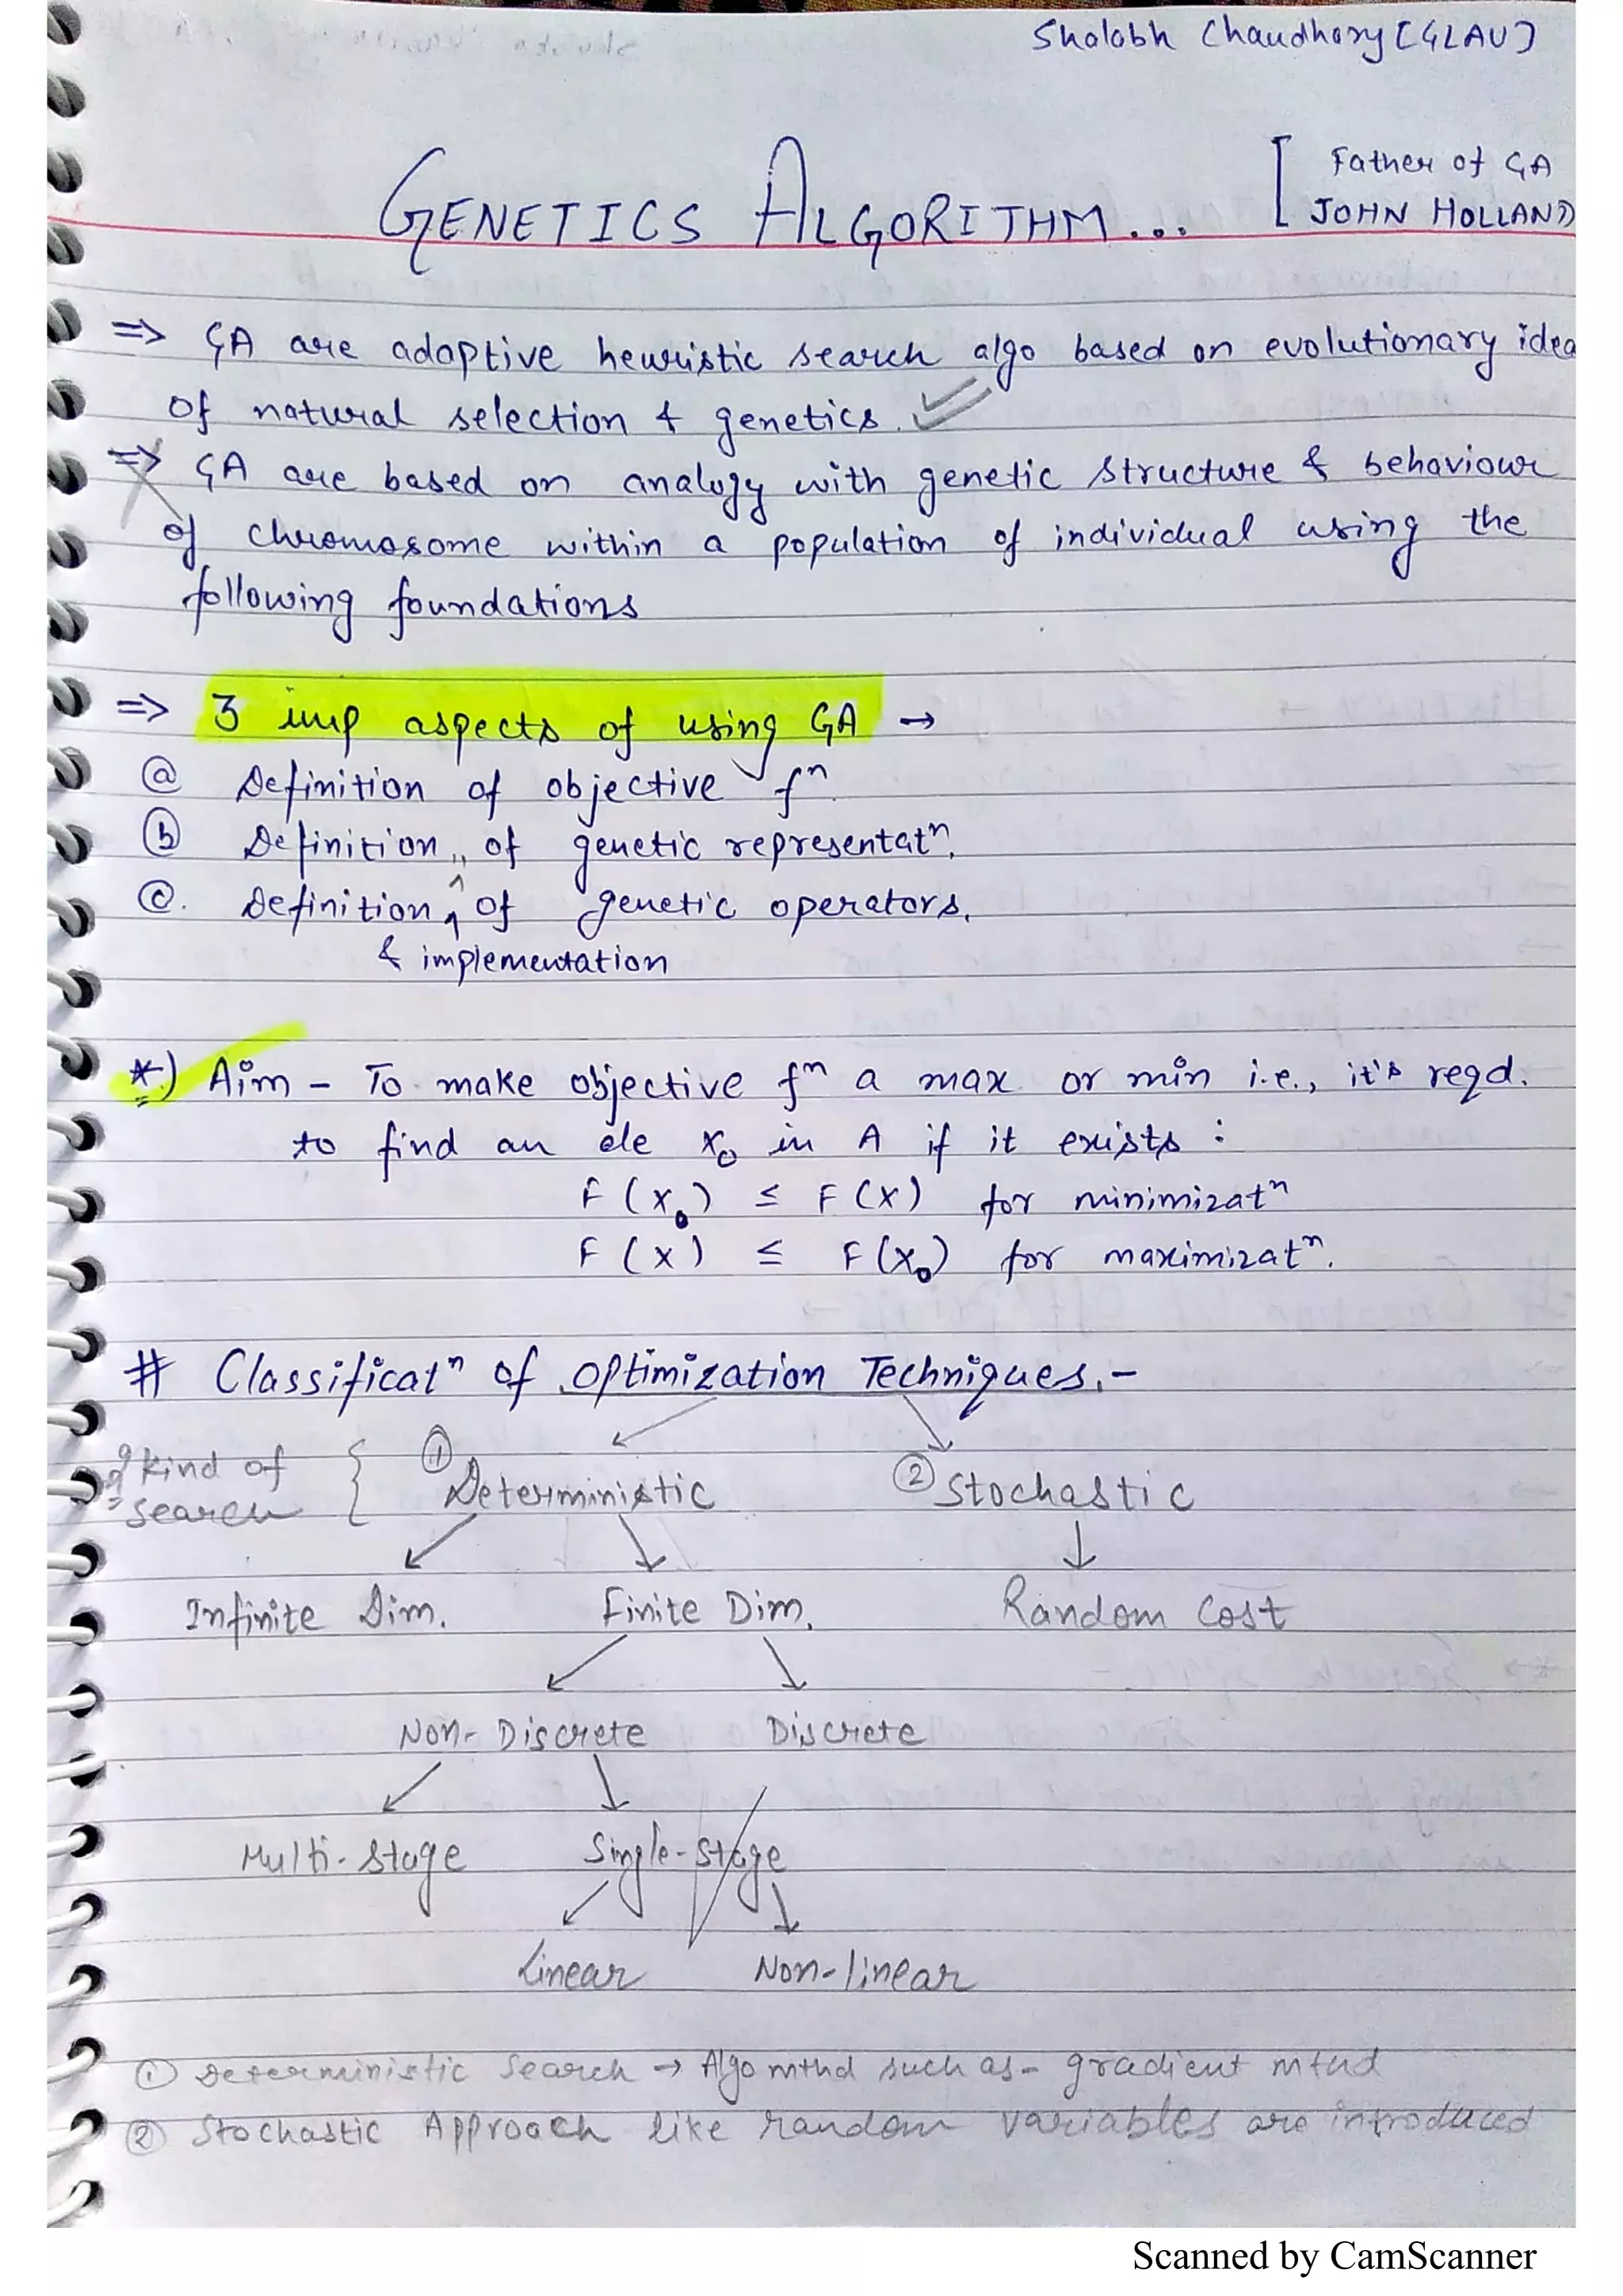 Shalabh Chaudhary [GLAU]
GENETICS ALGORITHM...
[ Father of GA
JOHN HOLLAND
=> GA are adaptive heuristic search algo based on evolutionary idea
of natural selection & genetics.
=> GA are based on analogy with genetic structure & behaviour
of chromosome within a population of individual using the
following foundations
=> 3 imp aspects of using GA →
ⓐ Definition of objective fⁿ.
ⓑ Definition ,, of genetic representatⁿ.
ⓒ. Definition ^ of genetic operators.
& implementation
*) Aim - To make objective fⁿ a max or min i.e., it's reqd.
to find an ele x₀ in A if it exists :
F(x₀) ≤ F(x) for minimizatⁿ
F(x) ≤ F(x₀) for maximizatⁿ.
# Classificatⁿ of Optimization Techniques.-
kind of search { ① Deterministic ② Stochastic
Infinite Dim. Finite Dim. Random Cost
Non-Discrete Discrete
Multi-Stage Single-Stage
Linear Non-linear
① Deterministic Search → Algo mthd such as- gradient mthd
② Stochastic Approach like random variables are introduced
Scanned by CamScanner